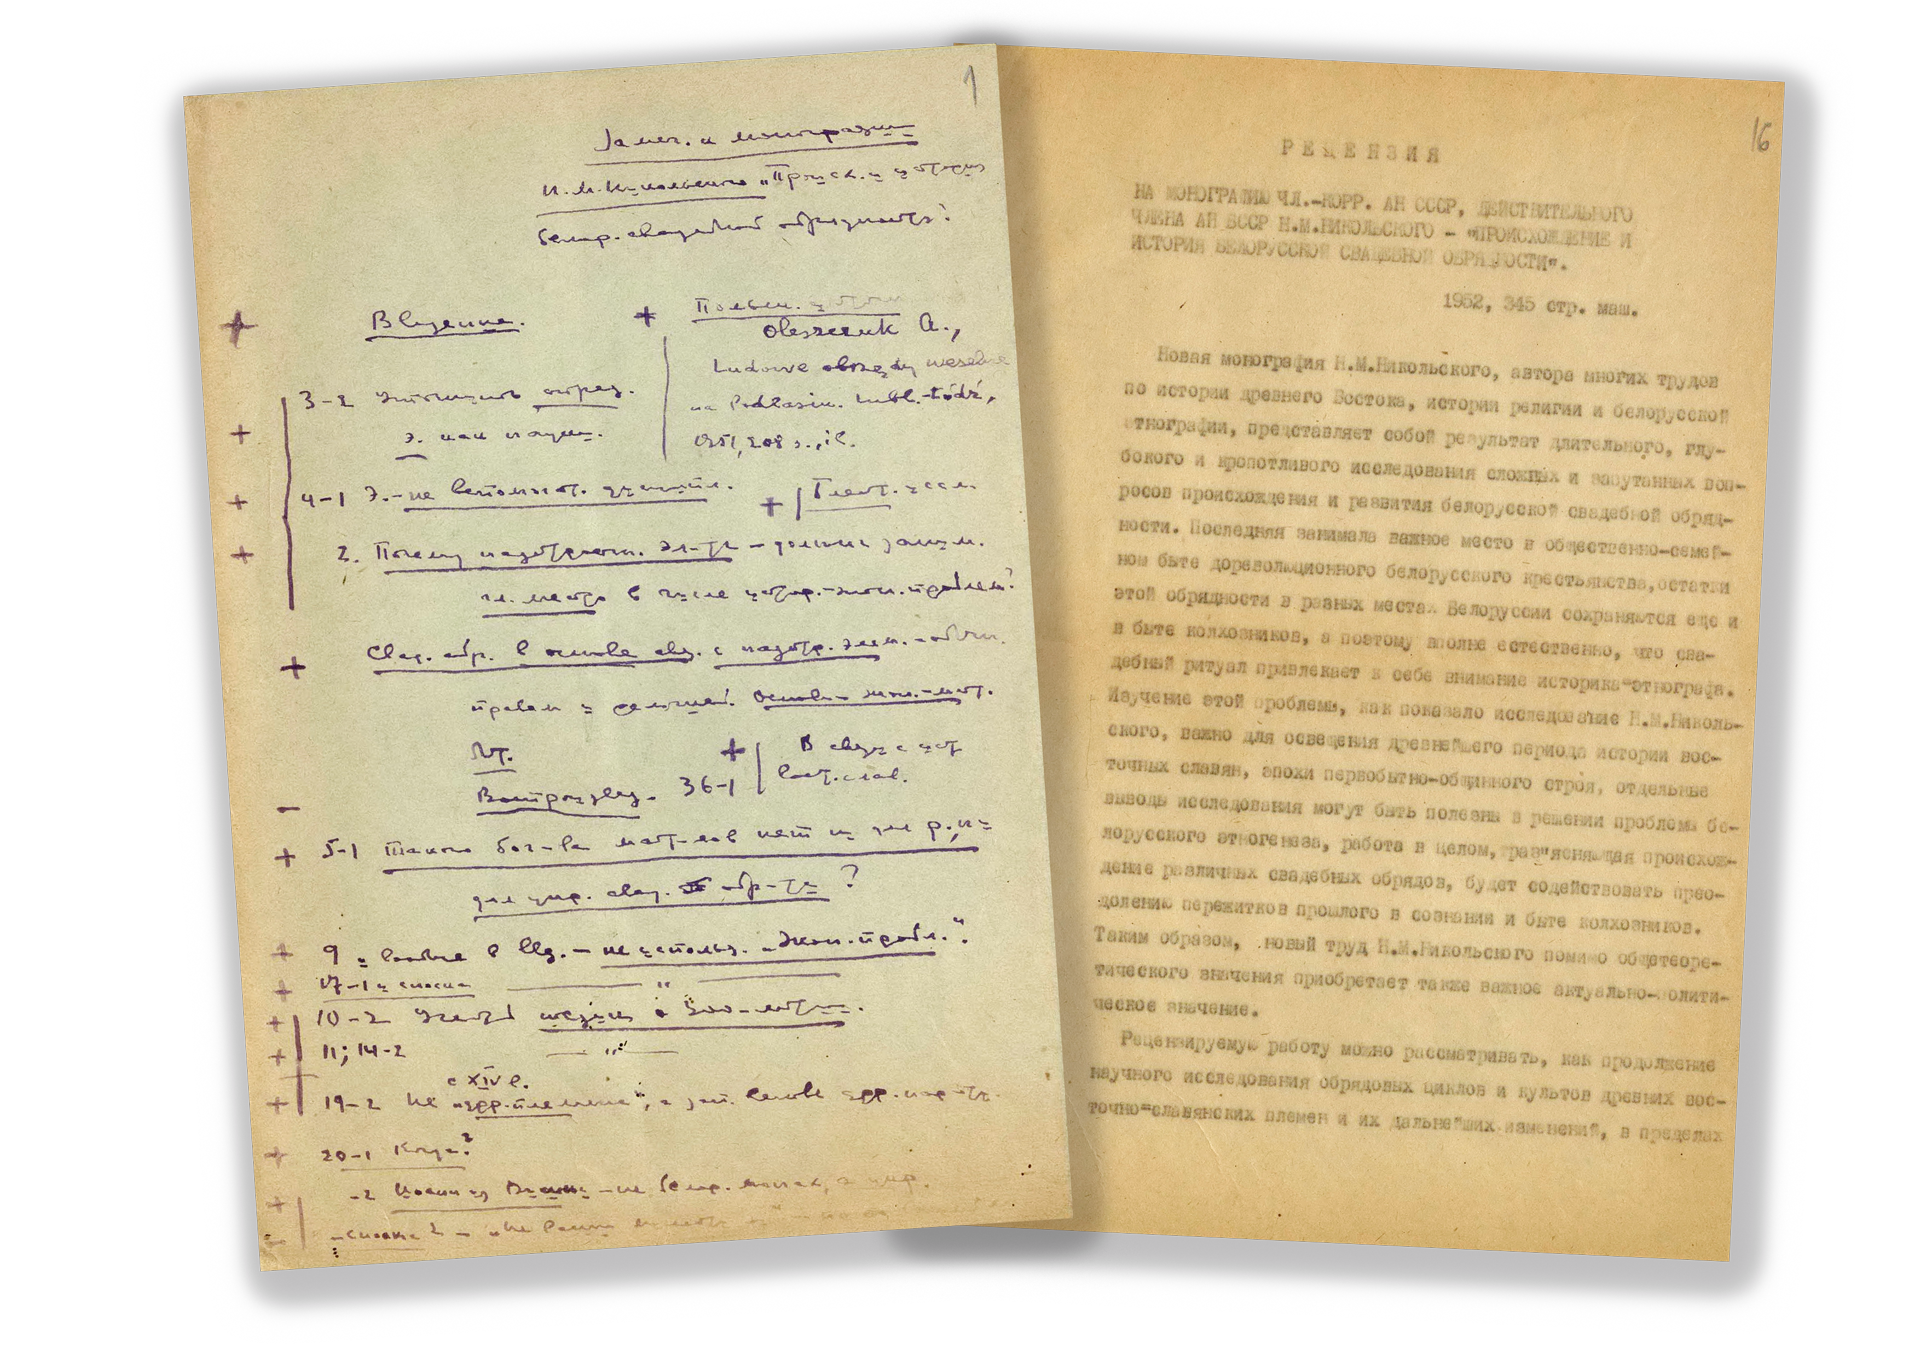 1
Замеч. к монографии
Н.М.Никольского „Происх. и история
белор. свадебной обрядности".
Введение.
+
Польск. источн.
Oleszczuk A.,
Ludowe obrzędy weselne
na Podlasiu. Lubl.-Łódź,
1951, 208 s., il.
3-2 Уточнить опред.
Э. как науки.
4-1 Э.-не вспомогат. дисципл.
2. Почему надстроечн. эл-ты – должны заним.
гл. место в числе истор.-экон. проблем?
Свад. обр. в основе свд. с надстр. элем. –
правом и религией. Основа – экон.-мат.
36-1
В связи с ист.
вост. слав.
5-1 Такого бог-ва мат-лов нет и для р., и
для укр. свад. обр-ти ?
9 и вообще в Вв. – не использ. „Экон. пробл.".
17-1 и сноска "
10-2
11; 14-2 "
с XIV в.
19-2 Не „др.племени",
20-1 Когда?
-2 – не белор. а укр.
-сноска 2 – „Не
16
РЕЦЕНЗИЯ
НА МОНОГРАФИЮ ЧЛ.-КОРР. АН СССР, ДЕЙСТВИТЕЛЬНОГО
ЧЛЕНА АН БССР Н.М.НИКОЛЬСКОГО – "ПРОИСХОЖДЕНИЕ И
ИСТОРИЯ БЕЛОРУССКОЙ СВАДЕБНОЙ ОБРЯДНОСТИ".
1952, 345 стр. маш.
Новая монография Н.М.Никольского, автора многих трудов
по истории древнего Востока, истории религии и белорусской
этнографии, представляет собой результат длительного, глу-
бокого и кропотливого исследования сложных и запутанных воп-
росов происхождения и развития белорусской свадебной обряд-
ности. Последняя занимала важное место в общественно-семей-
ном быте дореволюционного белорусского крестьянства,остатки
этой обрядности в разных местах Белоруссии сохраняются еще и
в быте колхозников, а поэтому вполне естественно, что сва-
дебный ритуал привлекает к себе внимание историка-этнографа.
Изучение этой проблемы, как показало исследование Н.М.Николь-
ского, важно для освещения древнейшего периода истории вос-
точных славян, эпохи первобытно-общинного строя, отдельные
выводы исследования могут быть полезны в решении проблемы бе-
лорусского этногенеза, работа в целом, раз"ясняющая происхож-
дение различных свадебных обрядов, будет содействовать прео-
долению пережитков прошлого в сознании и быте колхозников.
Таким образом, новый труд Н.М.Никольского помимо общетеоре-
тического значения приобретает также важное актуально-полити-
ческое значение.
Рецензируемую работу можно рассматривать, как продолжение
научного исследования обрядовых циклов и культов древних вос-
точно-славянских племен и их дальнейших изменений, в пределах